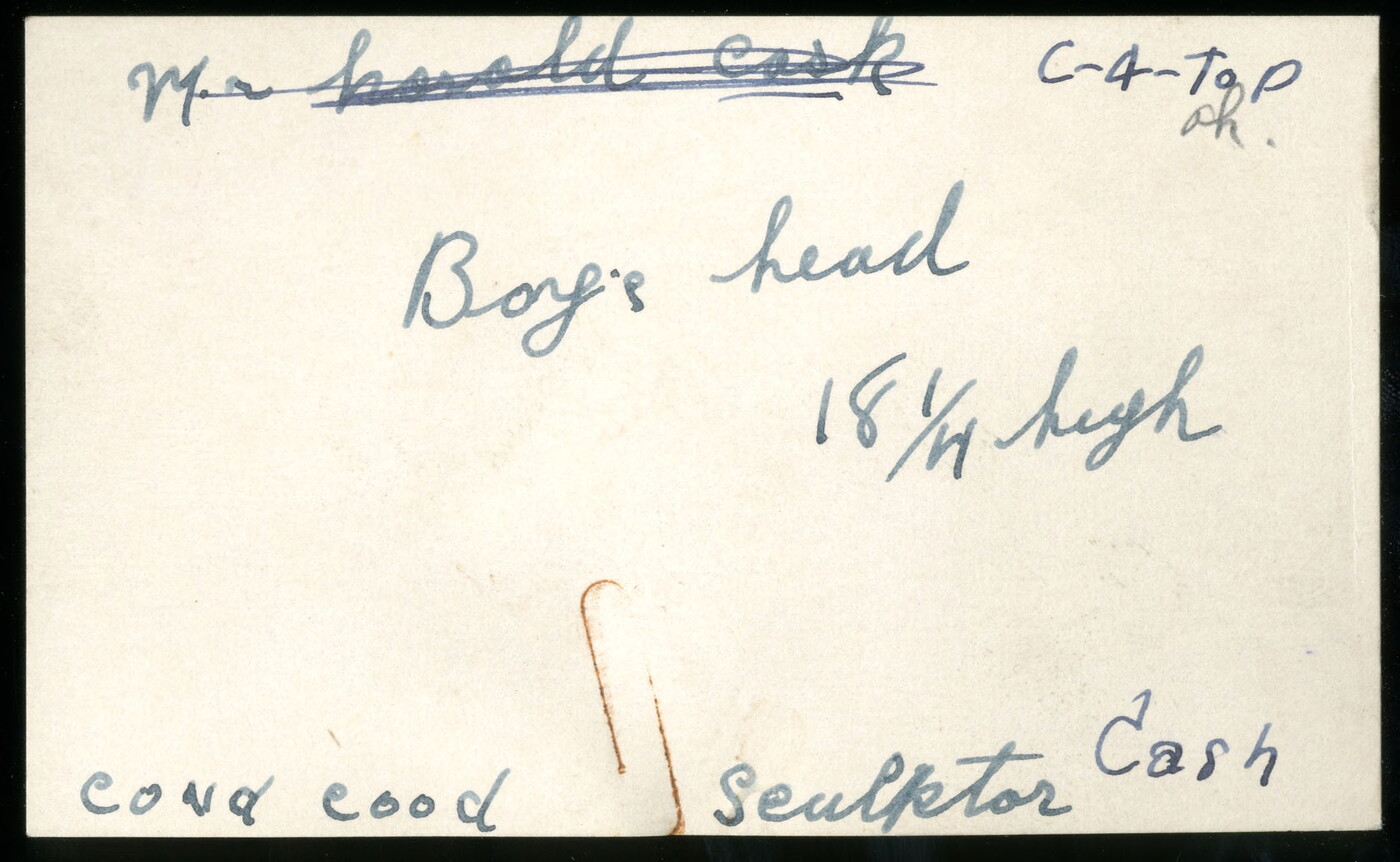 Mr harold cash C-4-Top
oh.
Boy's head
18 1/4 high
Cash
cond cood sculptor